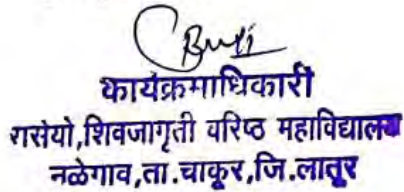 कार्यक्रमाधिकारी
रासेयो,शिवजागृती वरिष्ठ महाविद्यालय
नळेगाव,ता.चाकुर,जि.लातुर